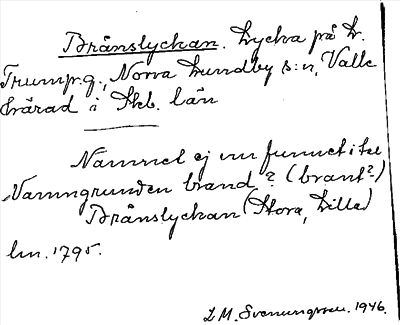 Brånslyckan. Lycka på L.
Trump.g., Norra Lundby s:n, Valle
härad i Skb. län
Namnet ej nu funnet i tal
Namngrunden brand? (brant?)
Brånslyckan (Stora, Lilla)
lm. 1795.
L M. Svenungsson. 1946.